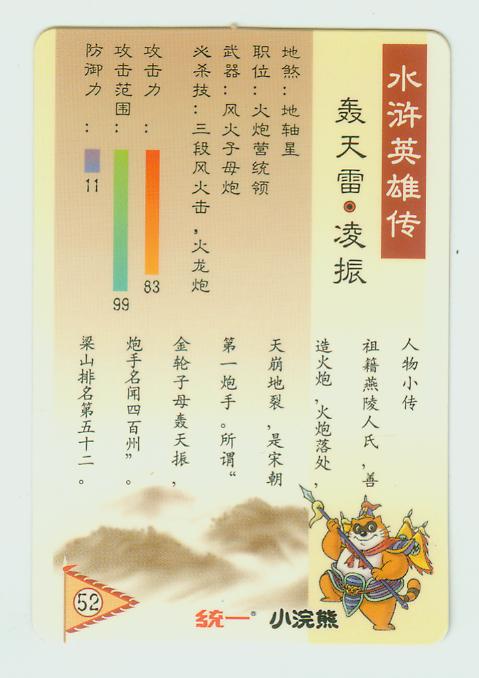 水浒英雄传
轰天雷·凌振
地煞：地轴星
职位：火炮营统领
武器：风火子母炮
必杀技：三段风火击，火龙炮
攻击力：
83
攻击范围：
99
防御力：
11
人物小传
祖籍燕陵人氏，善
造火炮，火炮落处，
天崩地裂，是宋朝
第一炮手。所谓“
金轮子母轰天振，
炮手名闻四百州”。
梁山排名第五十二。
52
统一® 小浣熊